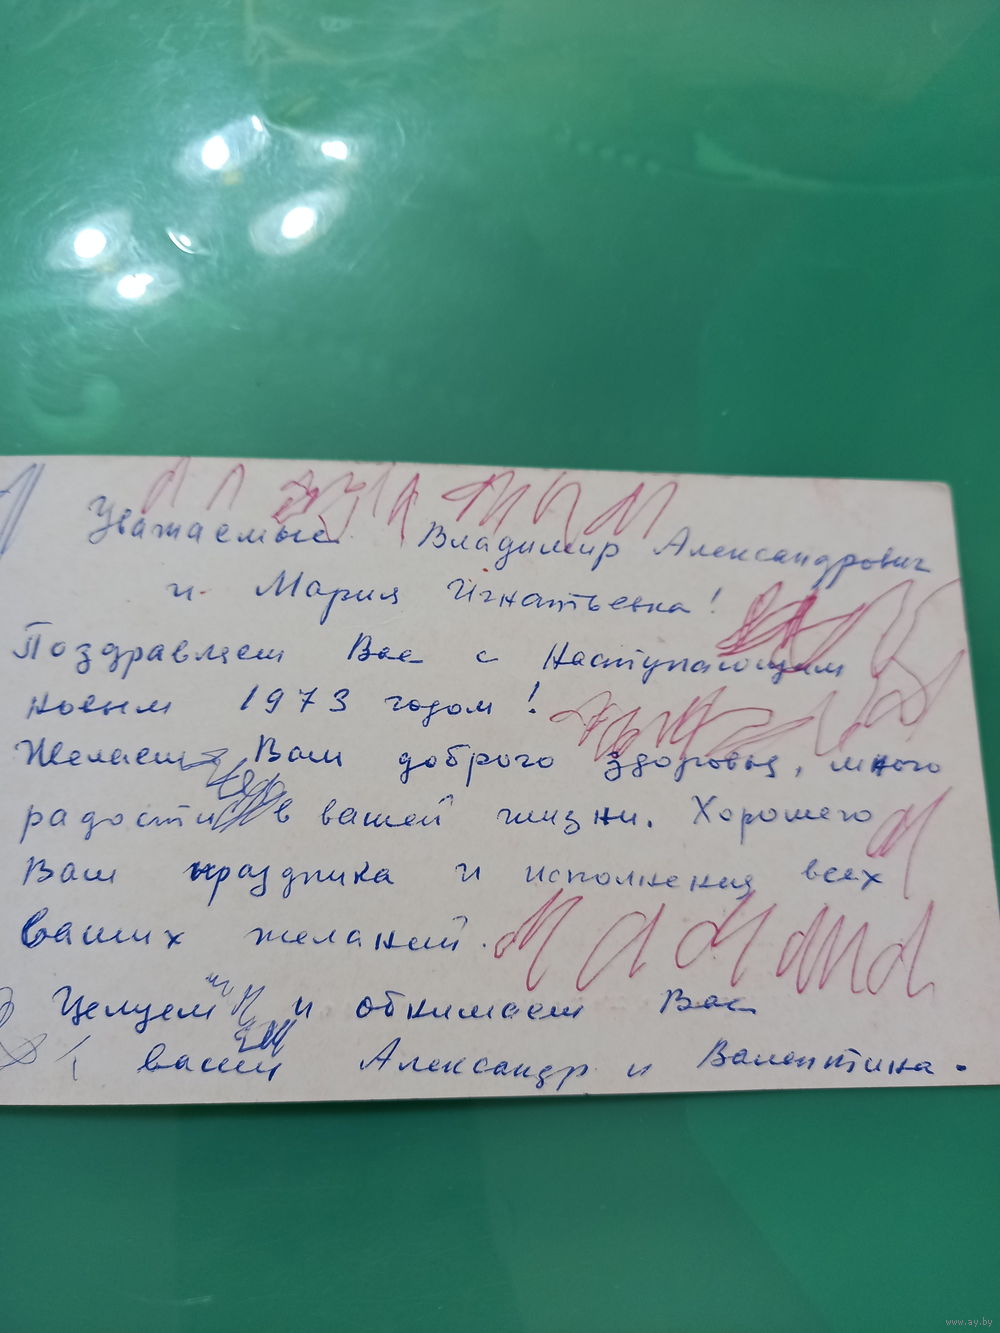 Уважаемые Владимир Александрович
и Мария Игнатьевна!
Поздравляем Вас с наступающим
новым 1973 годом!
Желаем Вам доброго здоровья, много
радости в вашей жизни. Хорошего
Вам праздника и исполнения всех
ваших желаний.
Целуем и обнимаем Вас
ваши Александр и Валентина.
www.ay.by